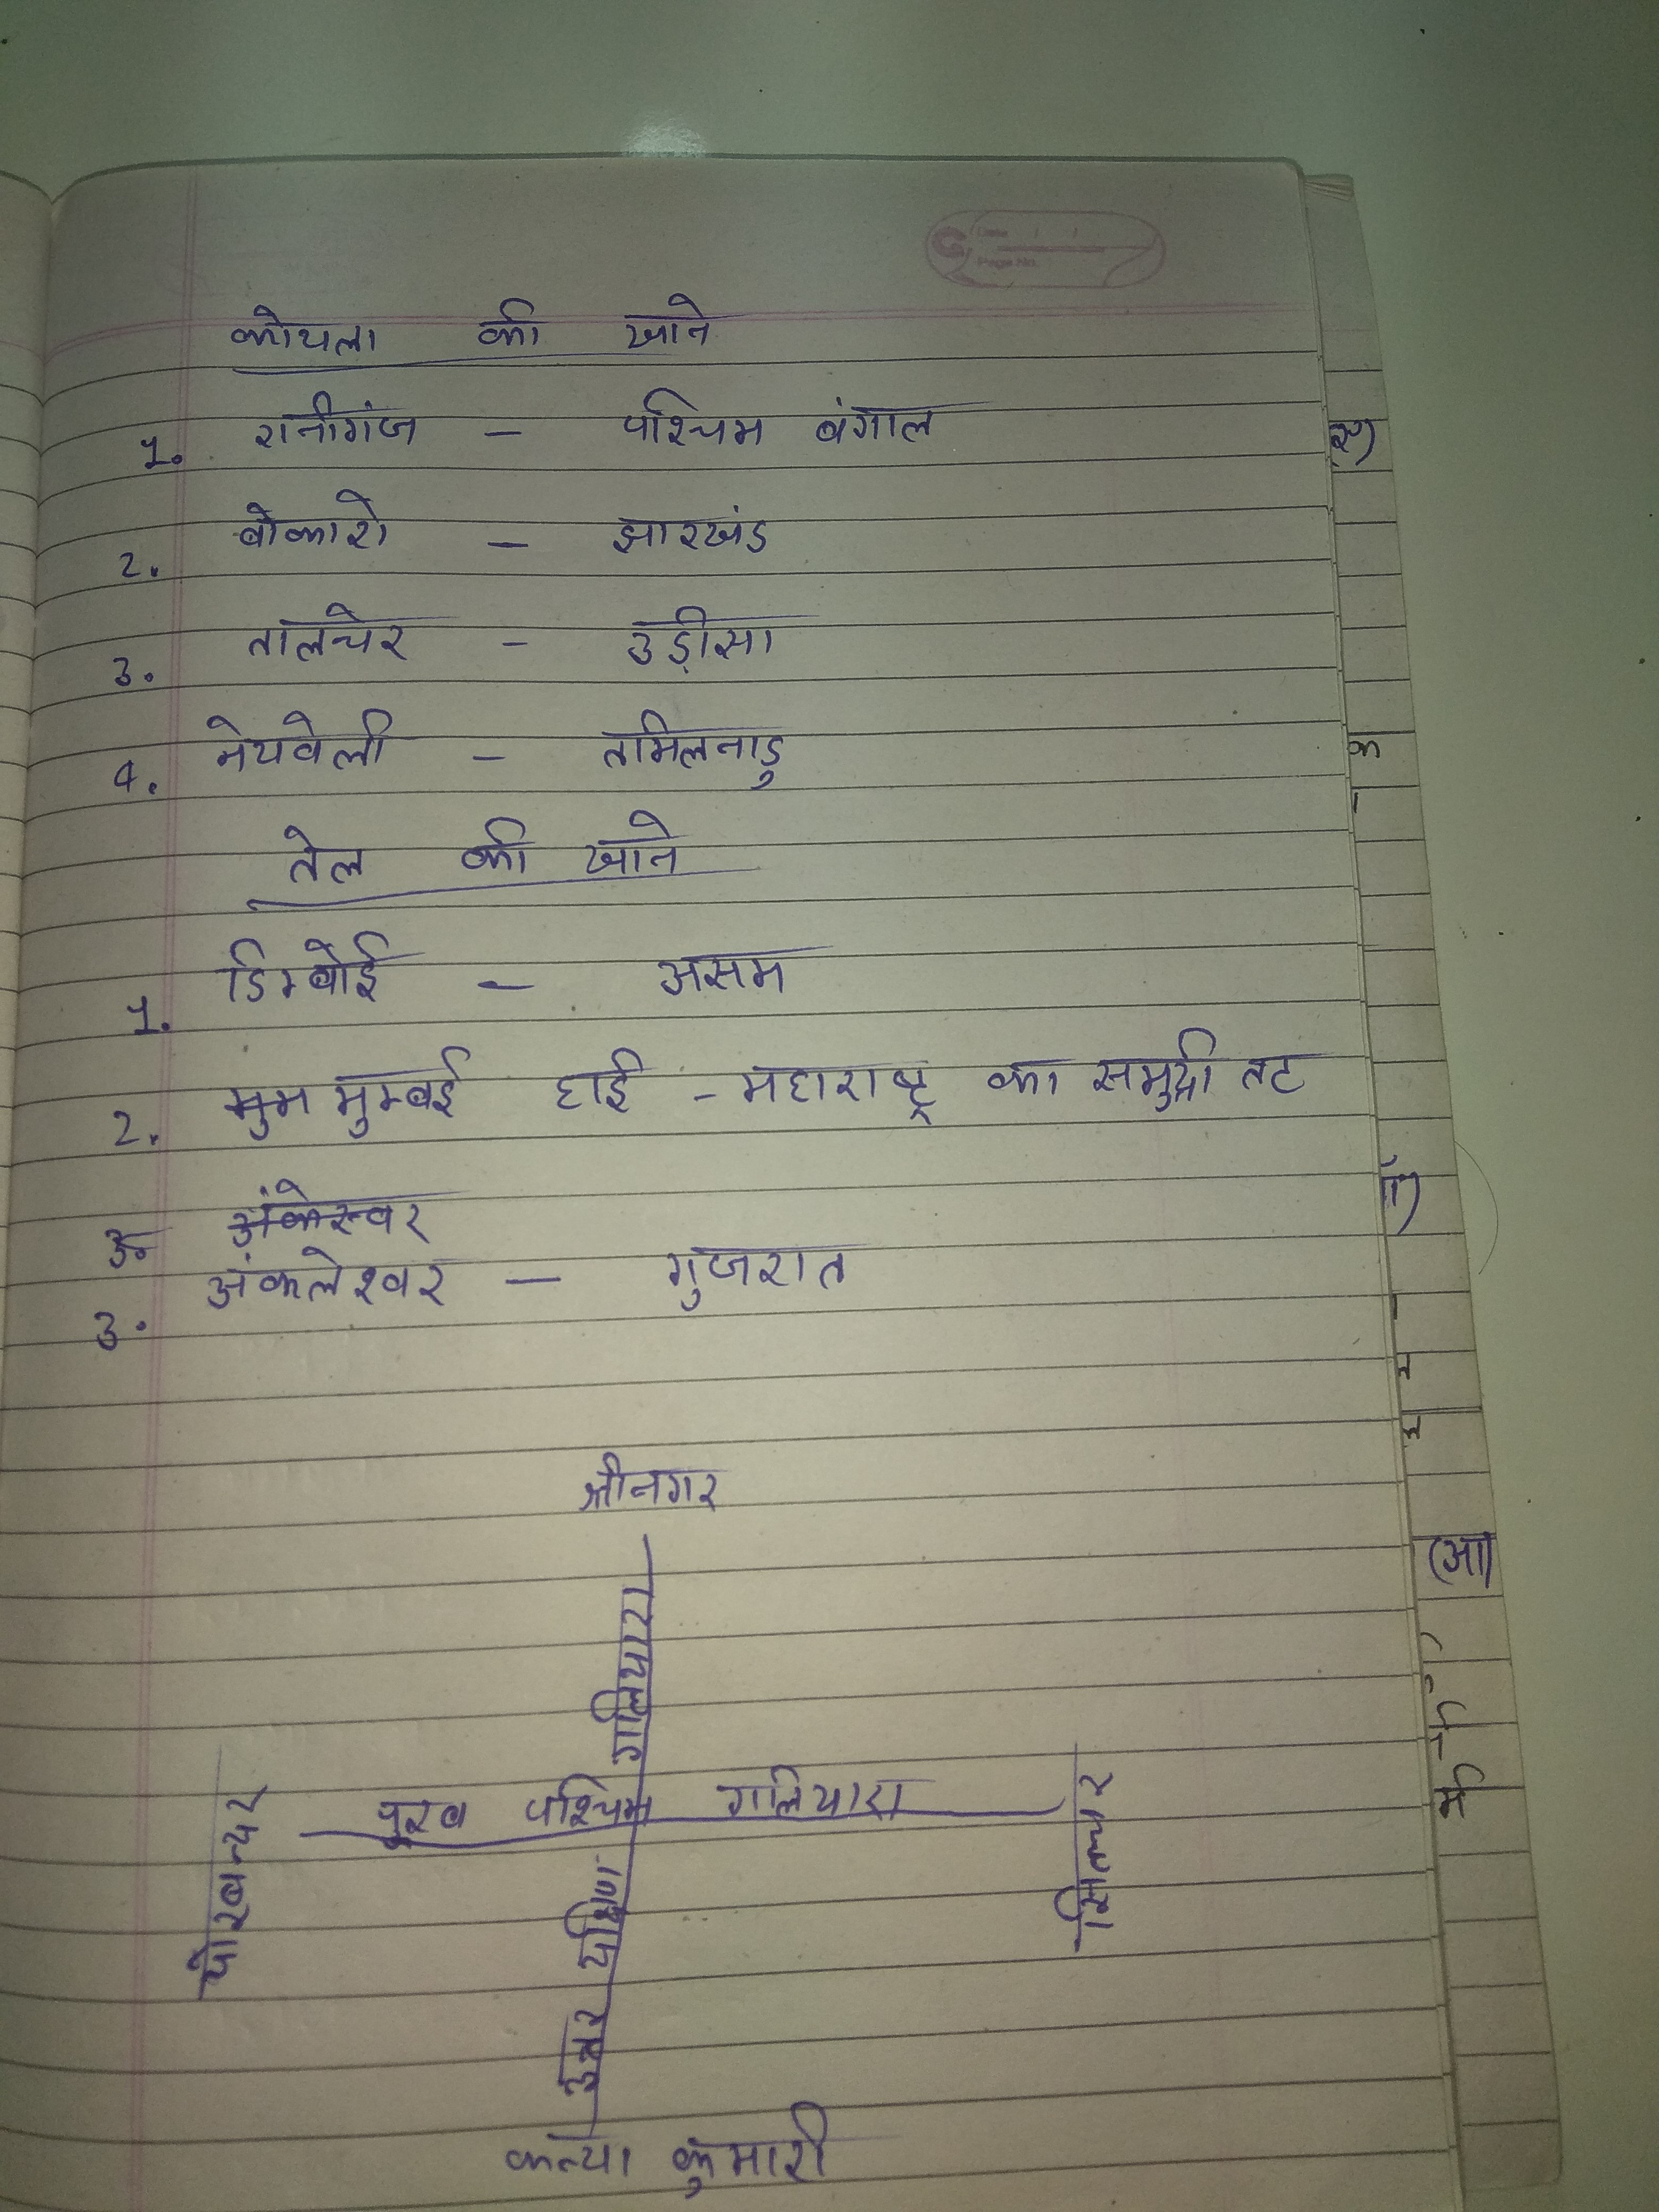 Date / /
Page No.
कोयला की खाने
1. रानीगंज – पश्चिम बंगाल
2. बोकारो – झारखंड
3. तालचेर – उड़ीसा
4. नेयवेली – तमिलनाडु
तेल की खाने
1. डिग्बोई – असम
2. मुम मुम्बई हाई – महाराष्ट्र का समुद्री तट
3. अंकेस्वर
3. अंकलेश्वर – गुजरात
श्रीनगर
उत्तर दक्षिण गलियारा
पूरब पश्चिम गलियारा
पोरबन्दर
सिल्चर
कन्या कुमारी